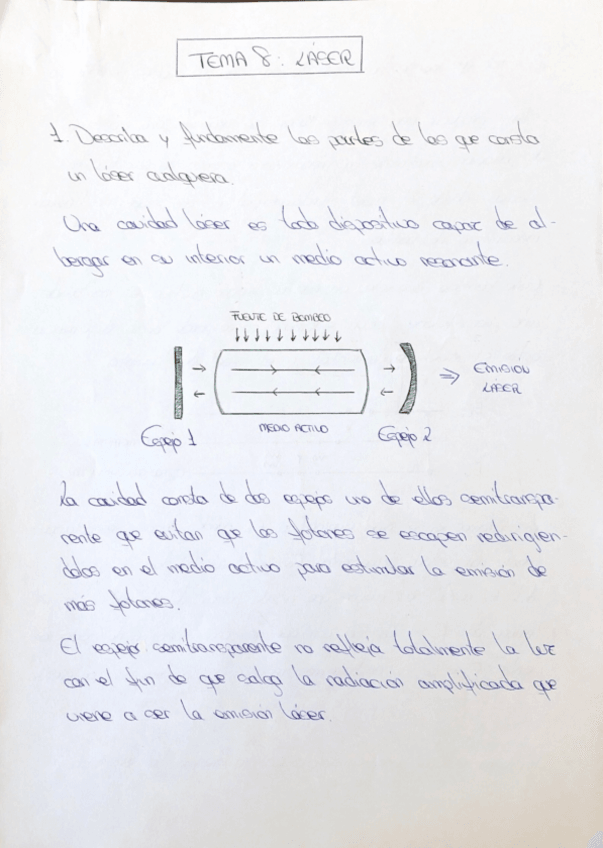 TEMA 8: LÁSER
1. Describa y fundamente las partes de las que consta
un láser cualquiera.
Una cavidad láser es todo dispositivo capaz de al-
bergar en su interior un medio activo resonante.
FUENTE DE BOMBEO
EMISIÓN
LÁSER
Espejo 1
MEDIO ACTIVO
Espejo 2
La cavidad consta de dos espejos uno de ellos semitranspa-
rente que evitan que los fotones se escapen redirigien-
dolos en el medio activo para estimular la emisión de
más fotones.
El espejo semitransparente no refleja totalmente la luz
con el fin de que salga la radiación amplificada que
viene a ser la emisión láser.